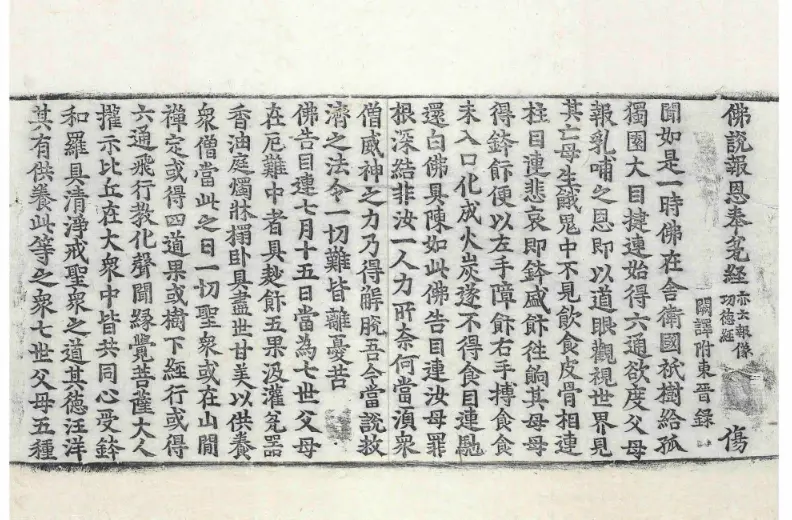 佛說報恩奉瓫經 亦云報像功德經 傷
闕譯附東晉錄
聞如是一時佛在舍衛國祇樹給孤
獨園大目揵連始得六通欲度父母
報乳哺之恩即以道眼觀視世界見
其亡母生餓鬼中不見飲食皮骨相連
柱目連悲哀即鉢盛飰往餉其母母
得鉢飰便以左手障飰右手摶食食
未入口化成火炭遂不得食目連馳
還白佛具陳如此佛告目連汝母罪
根深結非汝一人力所奈何當湏衆
僧威神之力乃得解脫吾今當說救
濟之法令一切難皆離憂苦
佛告目連七月十五日當為七世父母
在厄難中者具麨飰五果汲灌瓫器
香油庭燭牀榻卧具盡世甘美以供養
衆僧當此之日一切聖衆或在山間
禪定或得四道果或樹下經行或得
六通飛行教化聲聞緣覺菩薩大人
權示比丘在大衆中皆共同心受鉢
和羅具清淨戒聖衆之道其德汪洋
其有供養此等之衆七世父母五種